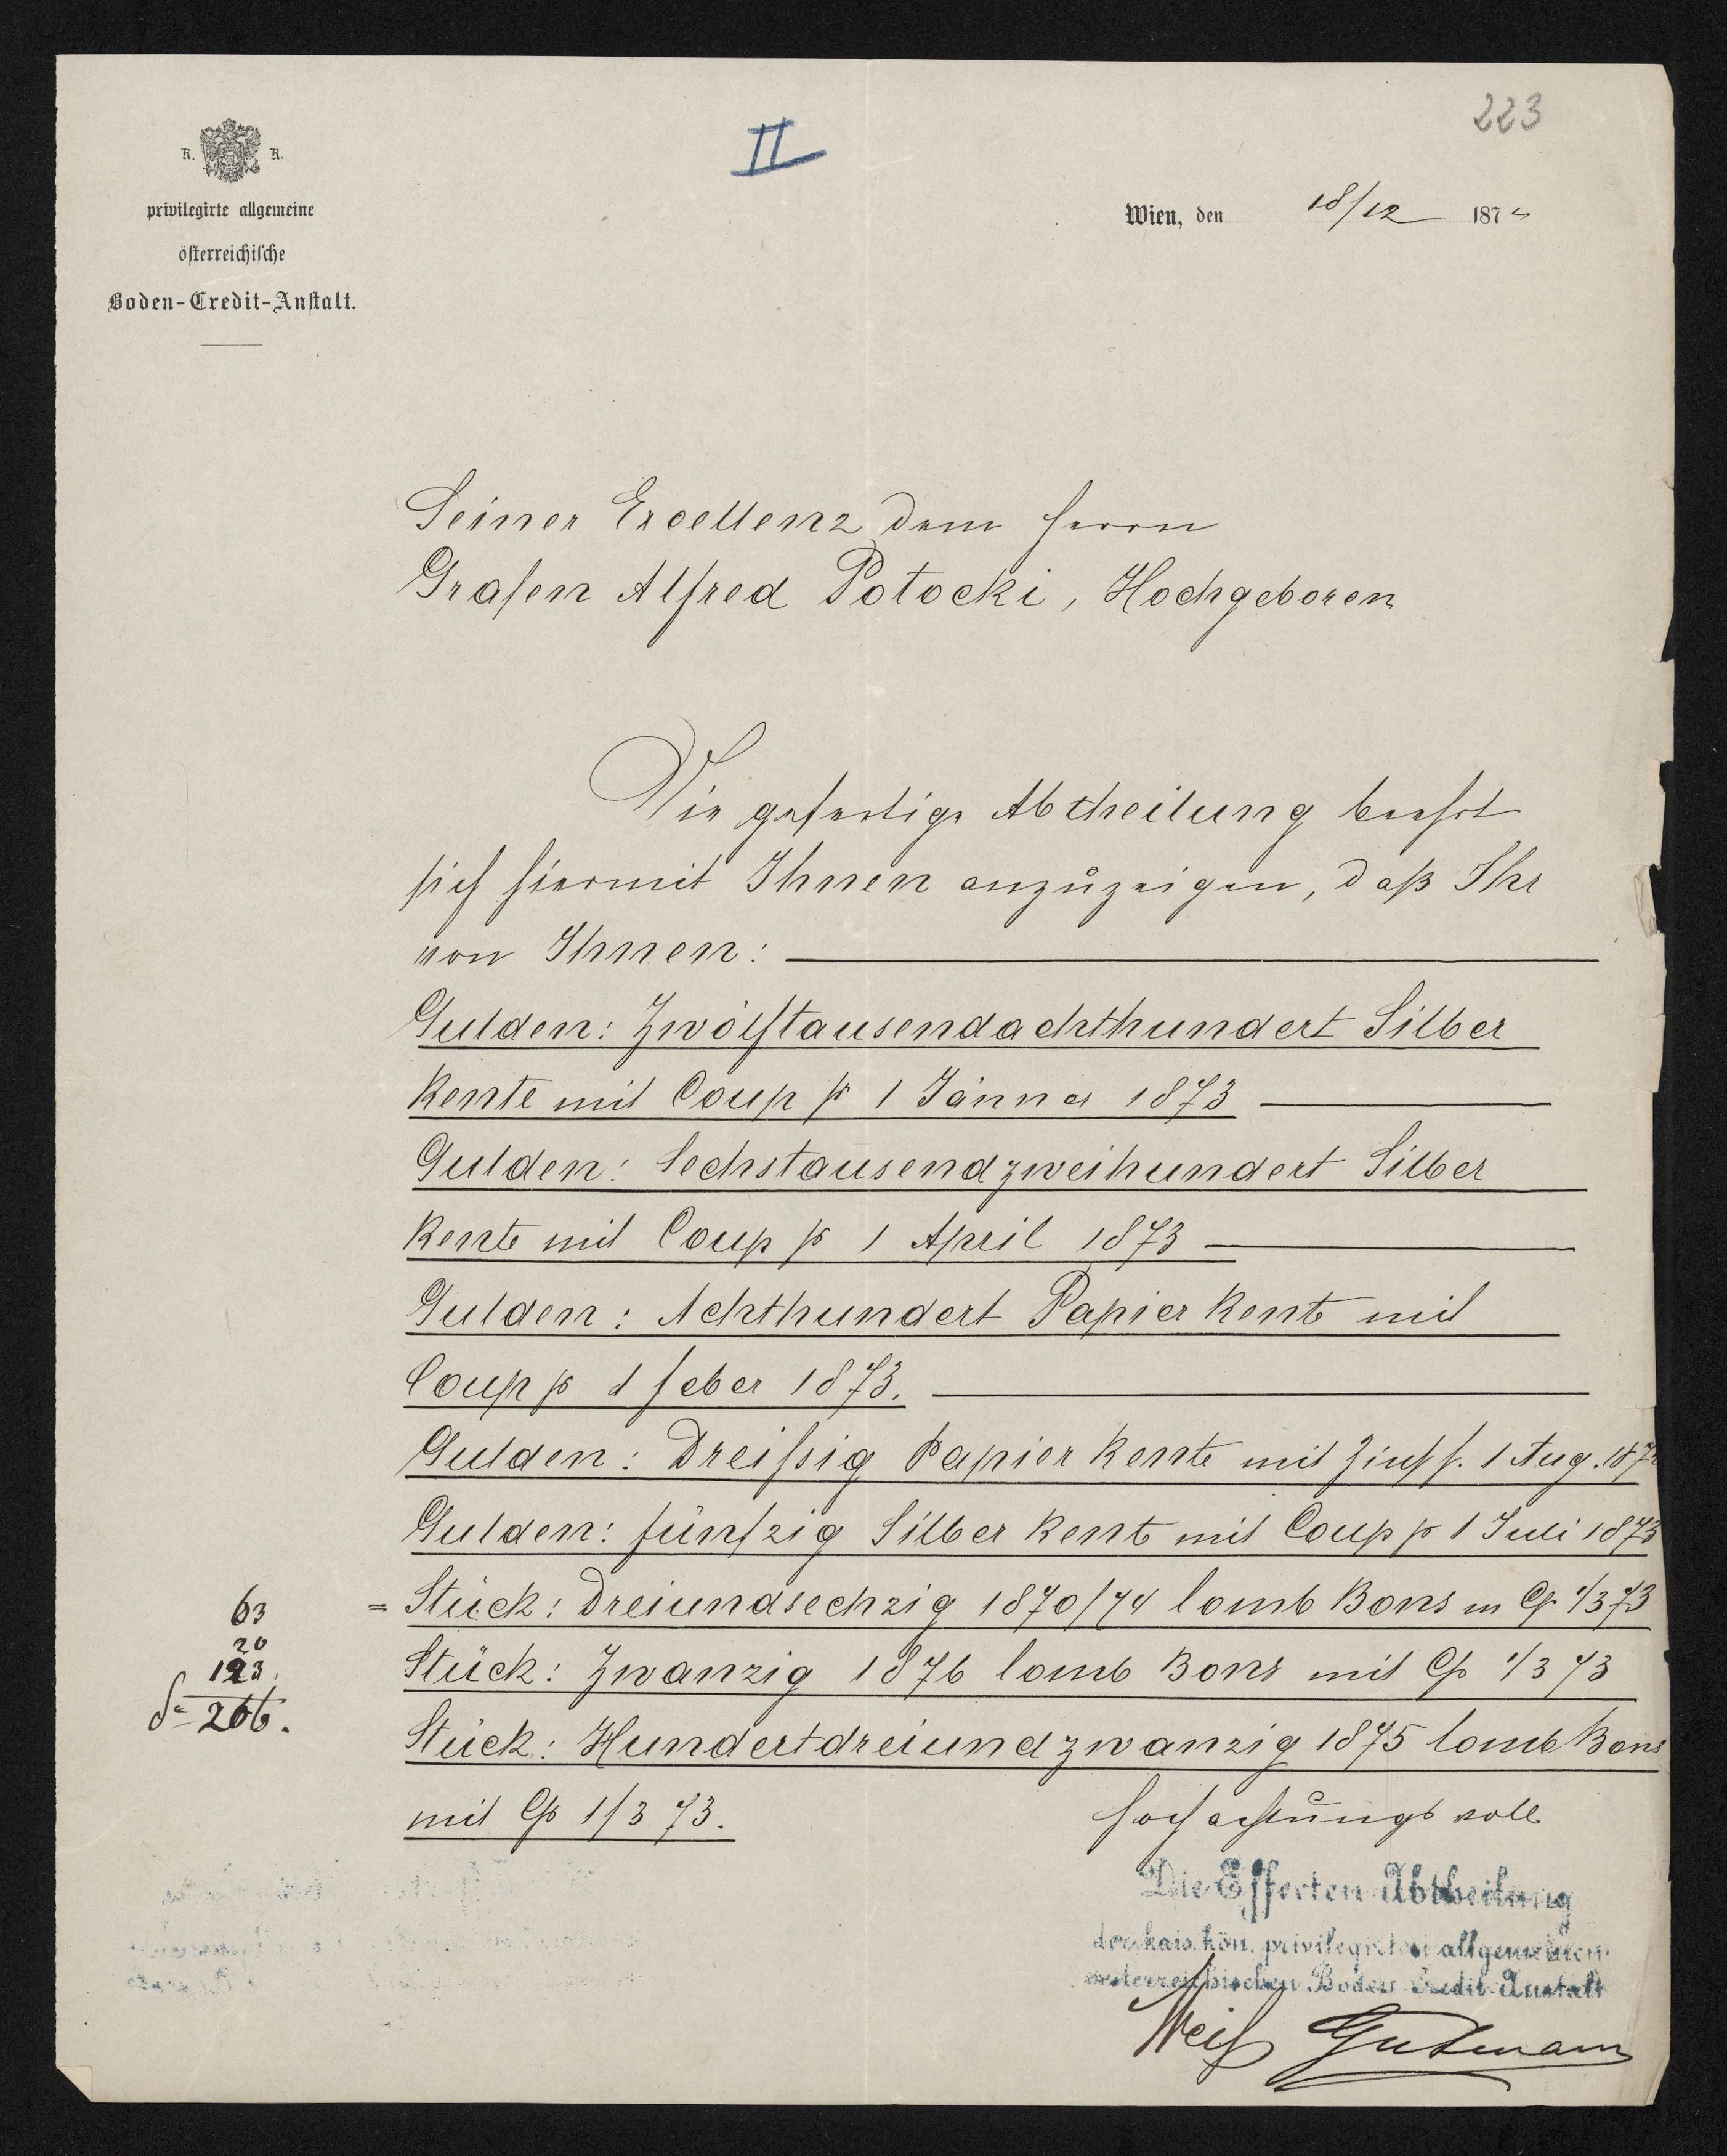 223
II
K. K.
privilegirte allgemeine
österreichische
Boden-Credit-Anstalt.
Wien, den 18/12 187
Seiner Excellenz dem Herrn
Grafen Alfred Potocki, Hochgeboren
Die gefertigte Abtheilung beehrt
sich hiermit Ihnen anzuzeigen, daß Ihr
von Ihnen:
Gulden: Zwölftausendachthundert Silber
Rente mit Coup p 1 Jänner 1873
Gulden: Sechstausendzweihundert Silber
Rente mit Coup p 1 April 1873
Gulden: Achthundert Papier Rente mit
Coup p 1 feber 1873.
Gulden: Dreißig Papier Rente mit 1 Aug.
Gulden: fünfzig Silber Rente mit Coup p 1 Juli 1873
63 = Stück: Dreiundsechzig 1870/74 lomb Bons m Cp 1/3 73
20
Stück: Zwanzig 1876 lomb Bons mit Cp 1/3 73
123.
266.
Stück: Hundertdreiundzwanzig 1875 lomb Bons
mit Cp 1/3 73.
Hochachtungsvoll
Die Effecten Abtheilung
der kais. kön. privilegirten allgemeinen
oesterreichischen Boden Credit-Anstalt
Weiß Gutmann